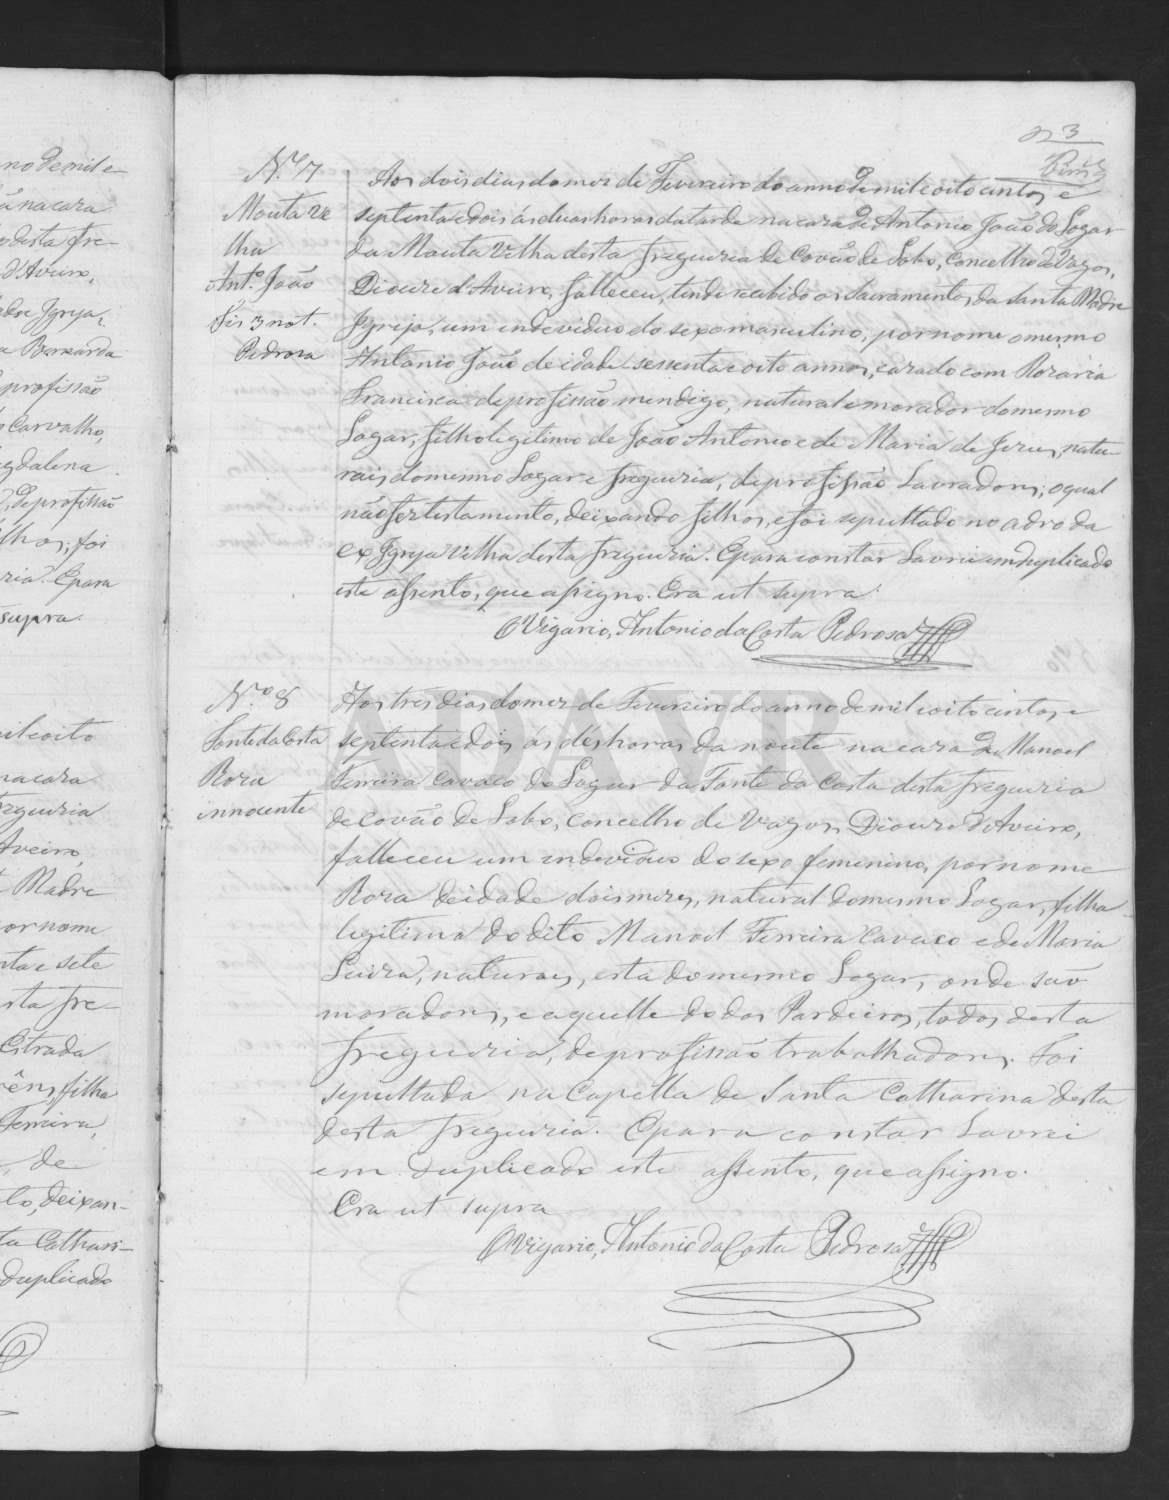 no de mil e
na caza
desta fre-
d'Aveiro,
dre Igreja,
a Bernarda
profissão
Carvalho,
gdalena
de profissão
lhos; foi
ria. E para
supra.
mil eoito
na caza
freguezia
Aveiro,
Madre
or nome
nta e sete
sta fre-
Estrada
filha
Ferreira,
de
to, deixan-
ta Cathari-
duplicado
3
N.º 7
Mouta Ve
lha
Ant.º João
Fis 3 not.
Pedroza
Aos dois dias do mez de Fevereiro do anno de mil eoito centos, e
septenta e dois ás duas horas da tarde na caza de Antonio João do Logar
da Mouta Velha desta freguezia de Covão do Lobo, Concelho de Vagos,
Diocese d'Aveiro, falleceu, tendo recebido os Sacramentos da Santa Madre
Igreja, um endeviduo do sexo masculino, por nome o mesmo
Antonio João de idade sessenta e oito annos, cazado com Rozaria
Francisca de profissão mendigo, natural e morador do mesmo
Logar, filho legitimo de João Antonio e de Maria de Jezus, natu-
raes do mesmo Logar e freguezia, de profissão Lavradores; o qual
não fez testamento, deixando filhos, e foi sepultado no adro da
ex Igreja velha desta freguezia. E para constar Lavrei em duplicado
este assento, que assigno. Era ut supra.
O Vigario, Antonio da Costa Pedroza
N.º 8
Fonte da Costa
Roza
innocente
Aos tres dias do mez de Fevereiro do anno de mil eoito centos, e
septenta e dois ás dés horas da noute na caza de Manoel
Ferreira Cavaco do Logar da Fonte da Costa desta freguezia
de Covão do Lobo, Concelho de Vagos, Diocese d'Aveiro,
falleceu um endeviduo do sexo femenino, por nome
Roza de idade dois mezes, natural do mesmo Logar, filha
legitima do dito Manoel Ferreira Cavaco e de Maria
naturaes, esta do mesmo Logar, onde são
moradores, e aquelle do dos Pardeiros, todos desta
freguezia, de profissão trabalhadores. Foi
sepultada na Capella de Santa Catharina desta
desta freguezia. E para constar Lavrei
em duplicado este assento, que assigno.
Era ut supra
O Vigario, Antonio da Costa Pedroza
ADAVR